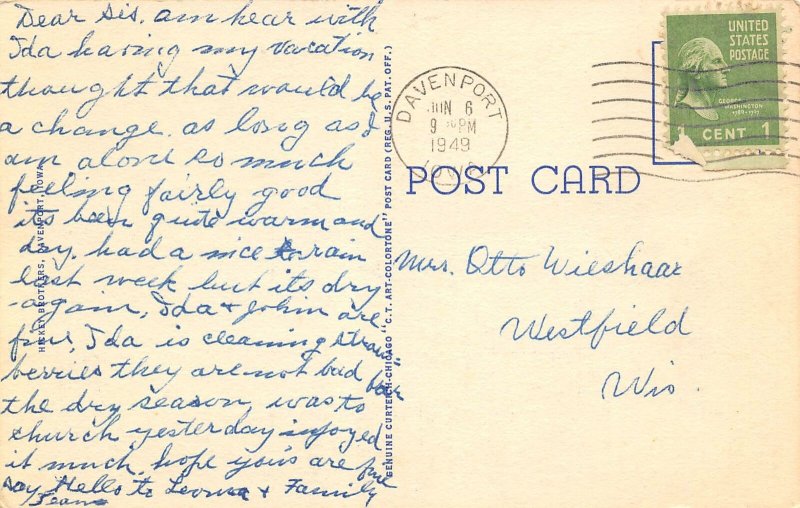 Dear Sis. am hear with
Ida having my vacation
thought that would be
a change. as long as I
am alone so much
feeling fairly good
its been quite warm and
dry. had a nice rain
last week but its dry
again, Ida + John are
fine, Ida is cleaning straw
berries they are not bad for
the dry season. was to
church yesterday injoyed
it much. hope you's are fine
say Hello to Leona + Family
HICKEY BROTHERS, DAVENPORT, IOWA
GENUINE CURTEICH-CHICAGO "C.T. ART-COLORTONE" POST CARD (REG. U.S. PAT. OFF.)
DAVENPORT
JUN 6
9 PM
1949
IOWA
UNITED
STATES
POSTAGE
GEORGE
WASHINGTON
1789-1797
1 CENT 1
POST CARD
Mrs. Otto Wieshaar
Westfield
Wis